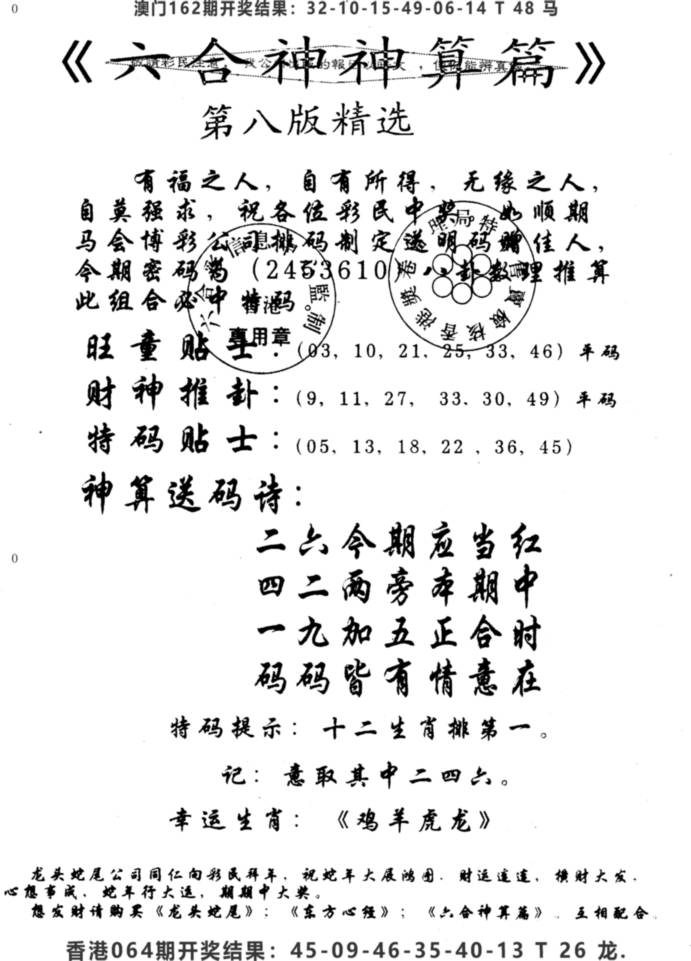 0
澳门162期开奖结果：32-10-15-49-06-14 T 48 马
《六合神神算篇》
第八版精选
有福之人，自有所得，无缘之人，
自莫强求，祝各位彩民中奖，如顺期
马会博彩公司排码制定送明码赠佳人，
今期密码为（2453610）八卦数理推算
此组合必中特码
專用章
旺童贴士：(03, 10, 21, 25, 33, 46) 平码
财神推卦：(9, 11, 27, 33. 30, 49) 平码
特码贴士：(05, 13, 18, 22 , 36, 45)
神算送码诗：
二六今期应当红
0
四二两旁本期中
一九加五正合时
码码皆有情意在
特码提示：十二生肖排第一。
记：意取其中二四六。
幸运生肖：《鸡羊虎龙》
龙头蛇尾公司同仁向彩民拜年，祝蛇年大展鸿图，财运连连，横财大发，
心想事成，蛇年行大运，期期中大奖。
想发财请购买《龙头蛇尾》；《东方心经》；《六合神算篇》，互相配合。
香港064期开奖结果：45-09-46-35-40-13 T 26 龙.